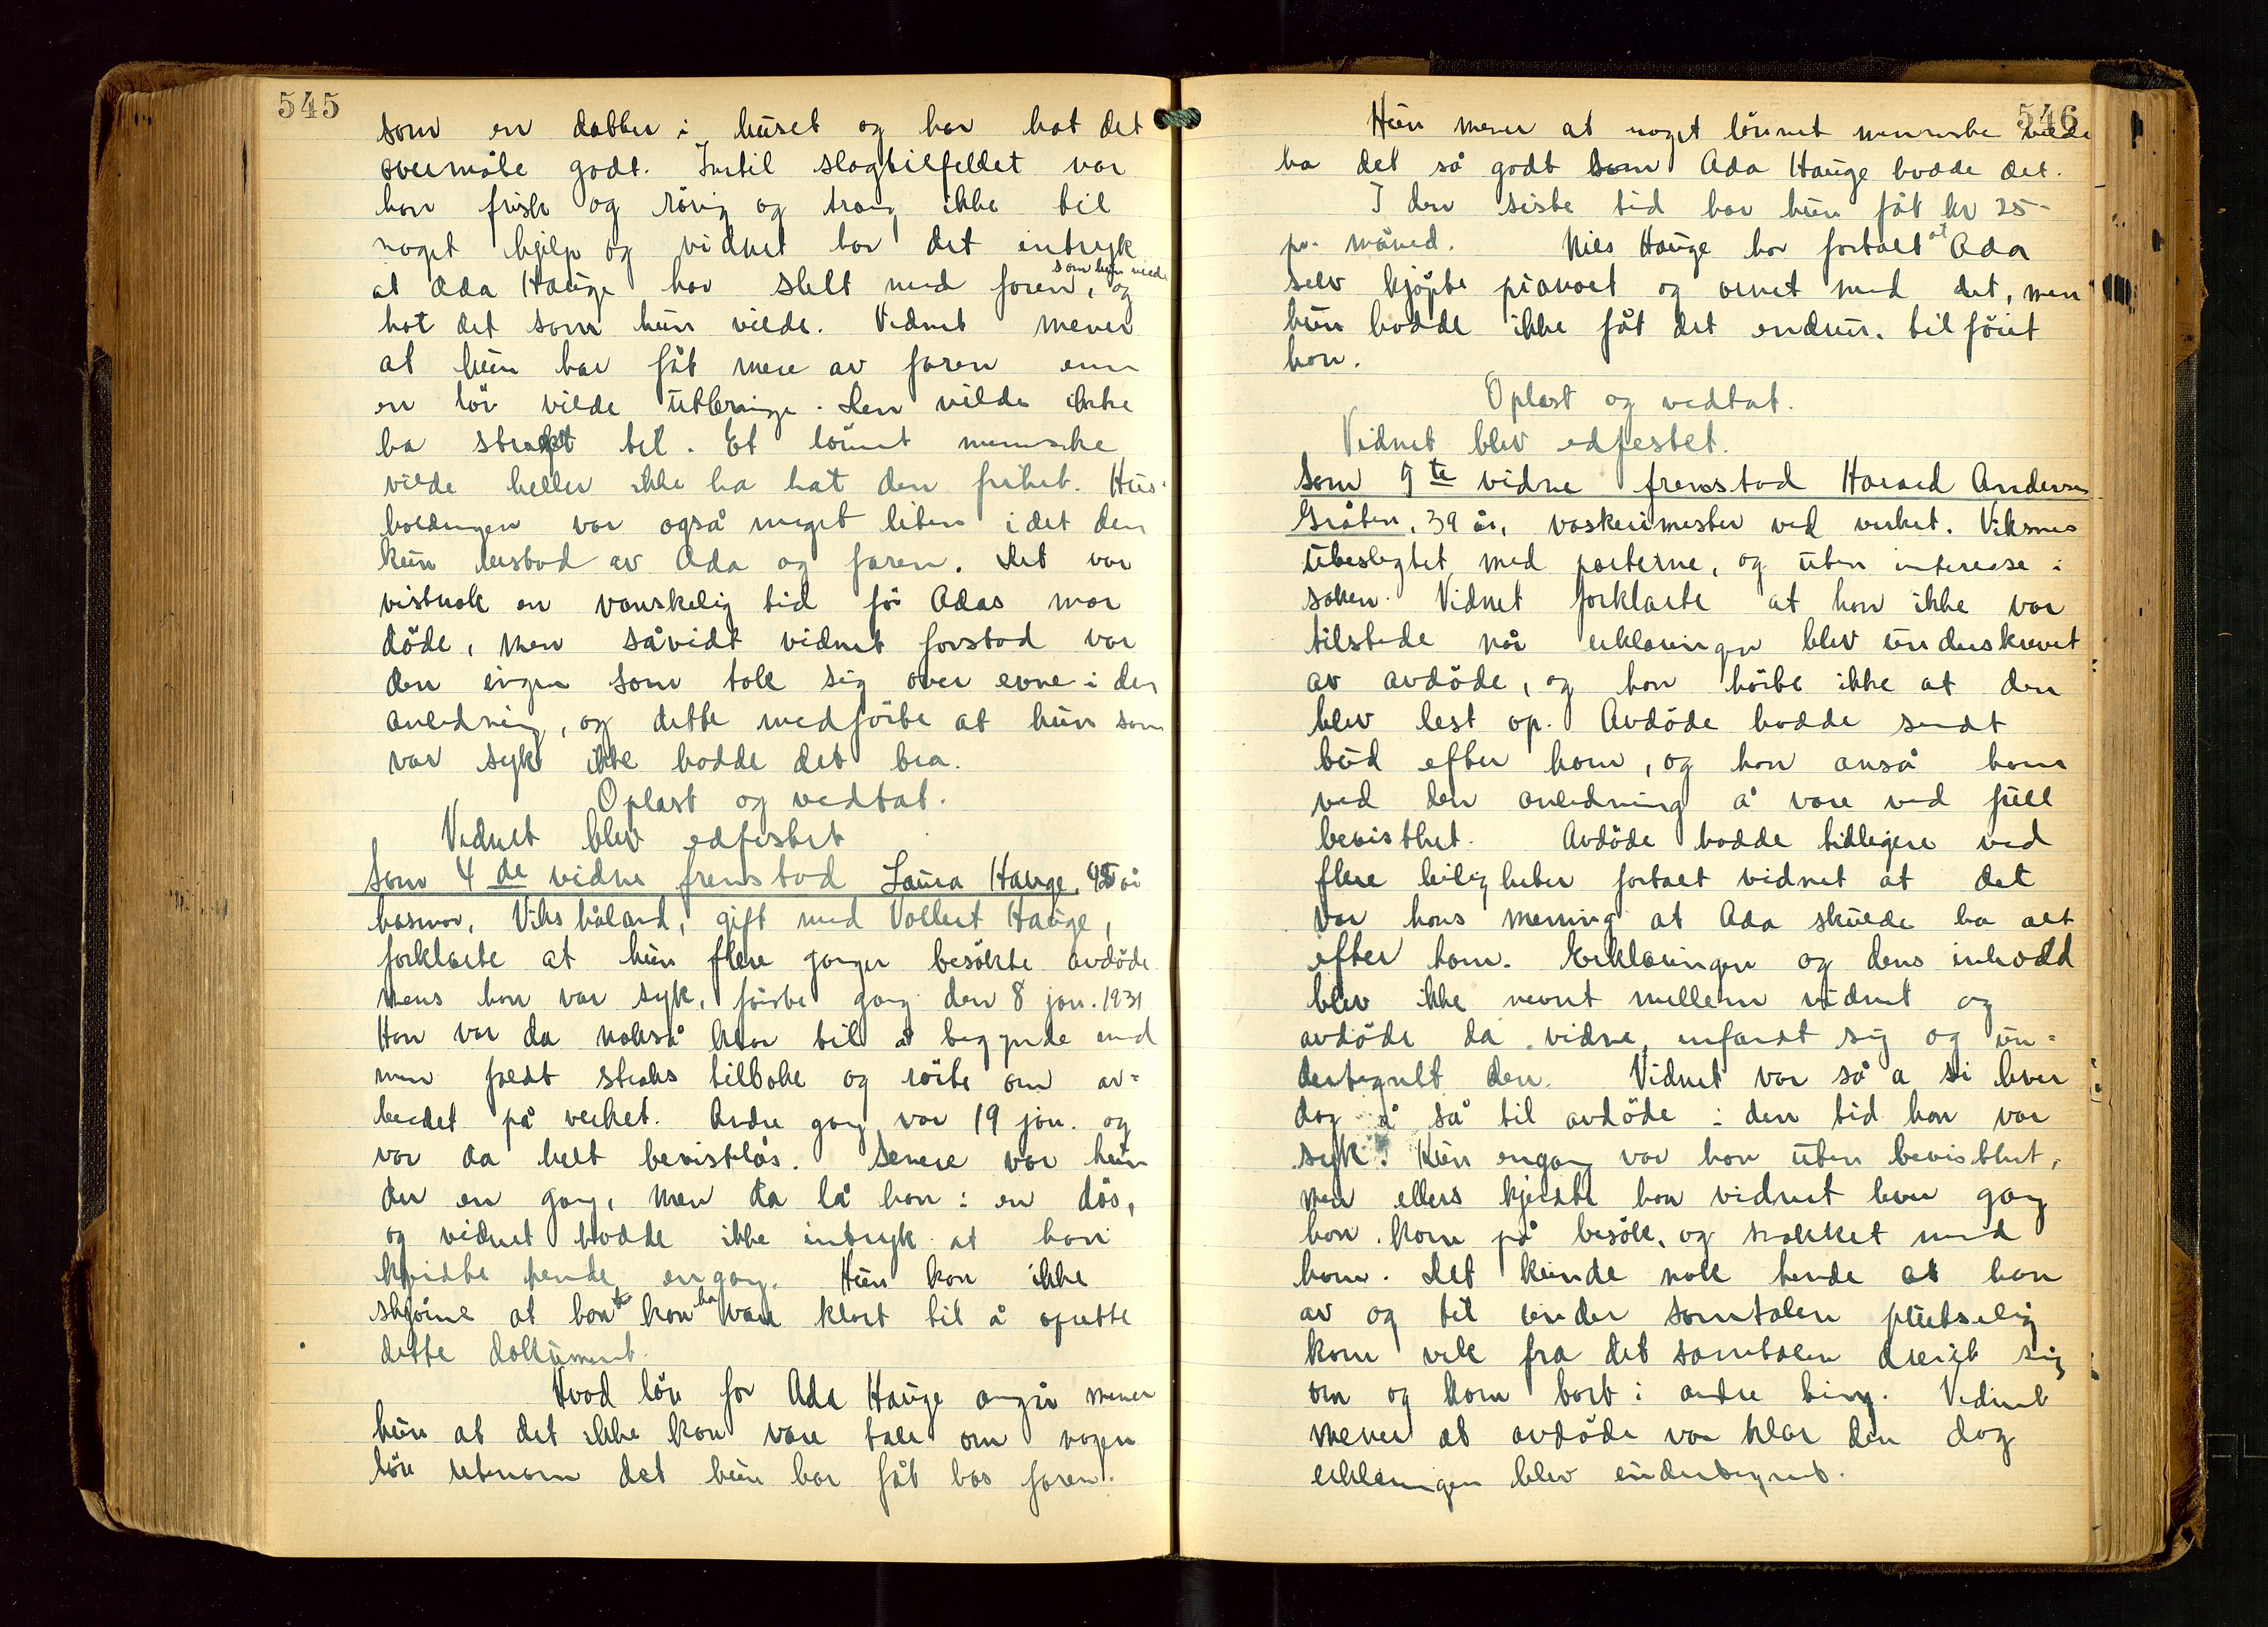 545
som en datter i huset og har hat det
overmåte godt. Intil slagtilfellet var
han frisk og rörig og trang ikke til
noget hjelp og vidnet har det intryk
at Ada Hauge har stelt med faren, som hun vilde og
hat det som hun vilde. Vidnet mener
at hun har fåt mere av faren enn
en lön vilde utbringe. Den vilde ikke
ha strakt til. Et lönnet menneske
vilde heller ikke ha hat den frihet. Hus-
holdningen var også meget liten idet den
kun bestod av Ada og faren. Det var
vistnok en vanskelig tid för Adas mor
döde, men såvidt vidnet forstod var
der ingen som tok sig over evne i den
anledning, og dette medförte at hun som
var syk ikke hadde det bra.
Oplæst og vedtat.
Vidnet blev edfestet
Som 4 de vidne fremstod Laura Hauge, 45 år
husmor, Vikshåland, gift med Vollert Hauge,
forklarte at hun flere ganger besökte avdöde
mens han var syk, förste gang den 8 jan. 1931
Han var da nokså klar til å begynde med
men faldt straks tilbake og rörte om ar=
beidet på verket. Andre gang var 19 jan. og
var da helt bevistlös. Senere var hun
der en gang, men da lå han i en dös,
og vidnet hadde ikke intryk at han
kjendte hende engang. Hun kan ikke
skjönne at han kan ha være klart til å oprette
dette dokument.
Hvad lön for Ada Hauge angår mener
hun at det ikke kan være tale om nogen
lön utenom det hun har fåt hos faren.
546
Hun mener at noget lönnet menneske vilde
ha det så godt som Ada Hauge hadde det.
I den siste tid har hun fåt kr 25-
pr. måned. Nils Hauge har fortalt at Ada
selv kjöpte pianoet og ornet med det, men
hun hadde ikke fåt det endnu. tilföiet
han.
Oplæst og vedtat.
Vidnet blev edfestet.
Som 9te vidne fremstod Harald Andersen
Gråten, 39 år, vaskerimester ved verket. Viksnes
ubeslegtet med parterne, og uten interesse i
saken. Vidnet forklarte at han ikke var
tilstede når erklæringen blev underskrevet
av avdöde, og han hörte ikke at den
blev lest op. Avdöde hadde sendt
bud efter ham, og han anså ham
ved den anledning å være ved full
bevisthet. Avdöde hadde tidligere ved
flere leiligheter fortalt vidnet at det
var hans mening at Ada skulde ha alt
efter ham. Erklæringen og dens inhold
blev ikke nevnt mellem vidnet og
avdöde da vidne infandt sig og un=
dertegnet den. Vidnet var så å si hver
dag å så til avdöde i den tid han var
syk. Kun engang var han uten bevisthet,
men ellers kjendte han vidnet hver gang
han kom på besök, og snakket med
ham. Det kunde nok hende at han
av og til under samtalen plutselig
kom vek fra det samtalen dreiet sig
om og kom bort i andre ting. Vidnet
mener at avdöde var klar den dag
erklæringen blev undertegnet.